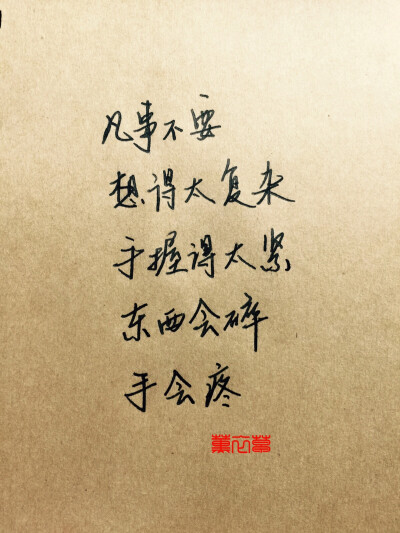 凡事不要
想得太复杂
手握得太紧
东西会碎
手会疼